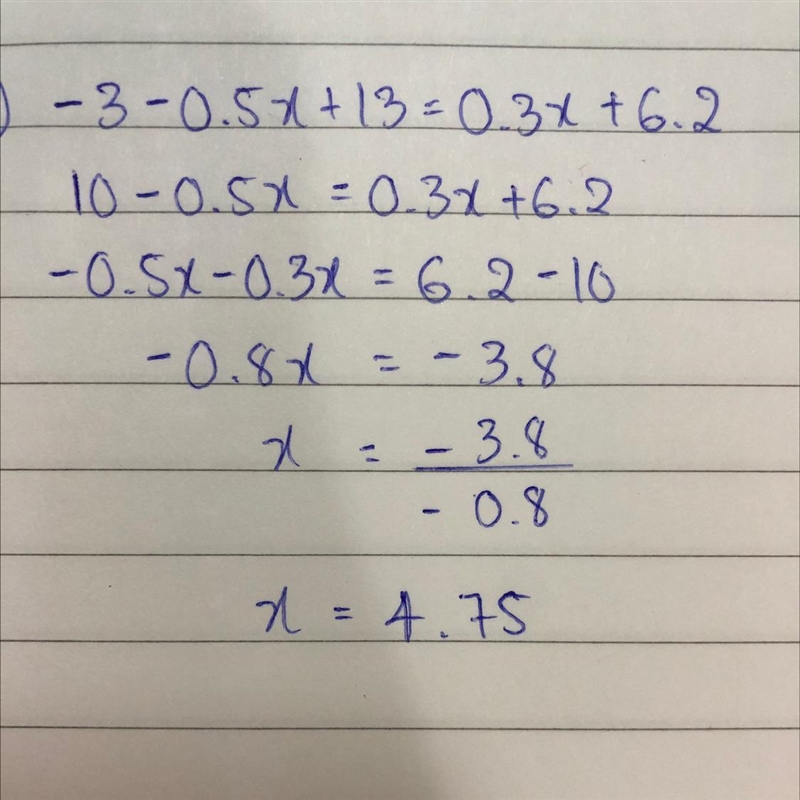 ) -3-0.5x+13=0.3x+6.2
10-0.5x=0.3x+6.2
-0.5x-0.3x=6.2-10
-0.8x=-3.8
x = -3.8
-0.8
x = 4.75